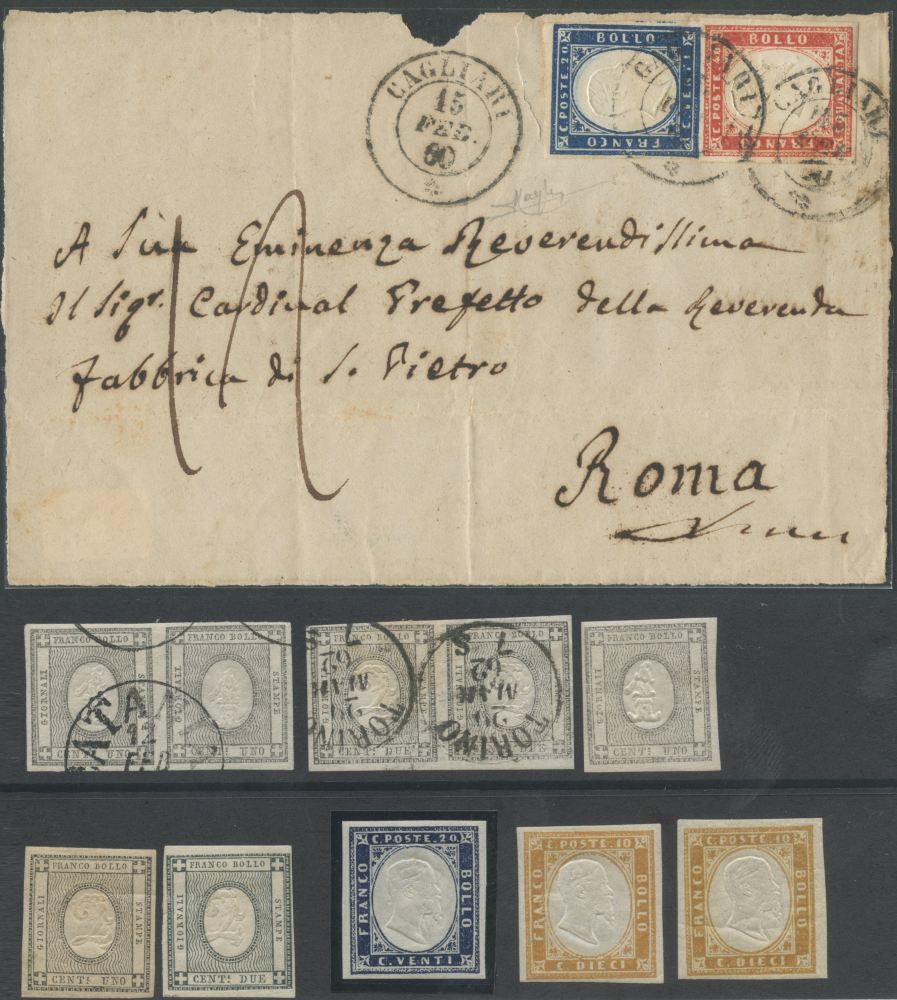 BOLLO
C. POSTE. 20.
C. VENTI
FRANCO
BOLLO
C. POSTE. 40.
QUARANTA
FRANCO
CAGLIARI
15
FEB.
60
CAGLIARI
A Sua Eminenza Reverendissima
Il Sigr. Cardinal Prefetto della Reverenda
Fabbrica di S. Pietro
Roma
FRANCO BOLLO
GIORNALI
STAMPE
CENT: UNO
FRANCO BOLLO
GIORNALI
STAMPE
CENT: UNO
12
FRANCO BOLLO
GIORNALI
CENT: DUE
TORINO
62
7 S
STAMPE
TORINO
62
7 S
FRANCO BOLLO
GIORNALI
STAMPE
CENT: UNO
FRANCO BOLLO
GIORNALI
STAMPE
CENT: UNO
FRANCO BOLLO
GIORNALI
STAMPE
2
CENT: DUE
C. POSTE. 20.
FRANCO
BOLLO
C. VENTI
C. POSTE. 10
FRANCO
BOLLO
C. DIECI
C. POSTE. 10
FRANCO
BOLLO
C. DIECI